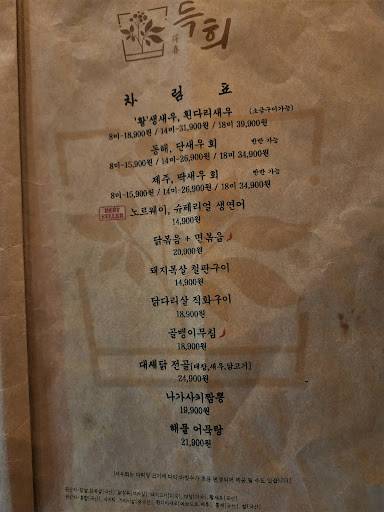 득희
차 림 표
'활'생새우, 흰다리새우 (소금구이가능)
8미-18,900원 / 14미-31,900원 / 18미 39,900원
동해, 단새우 회 반반 가능
8미-15,900원 / 14미-26,900원 / 18미 34,900원
제주, 딱새우 회 반반 가능
8미-15,900원 / 14미-26,900원 / 18미 34,900원
BEST SELLER 노르웨이, 슈페리얼 생연어
14,900원
닭볶음 + 면볶음
20,900원
돼지목살 철판구이
14,900원
닭다리살 직화구이
18,900원
골뱅이무침
18,900원
대세닭 전골[대창,새우,닭고기]
24,900원
나가사끼짬뽕
19,900원
해물 어묵탕
21,900원